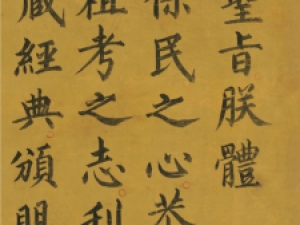 聖旨朕體
保民之心恭
祖考之志利
藏經典頒